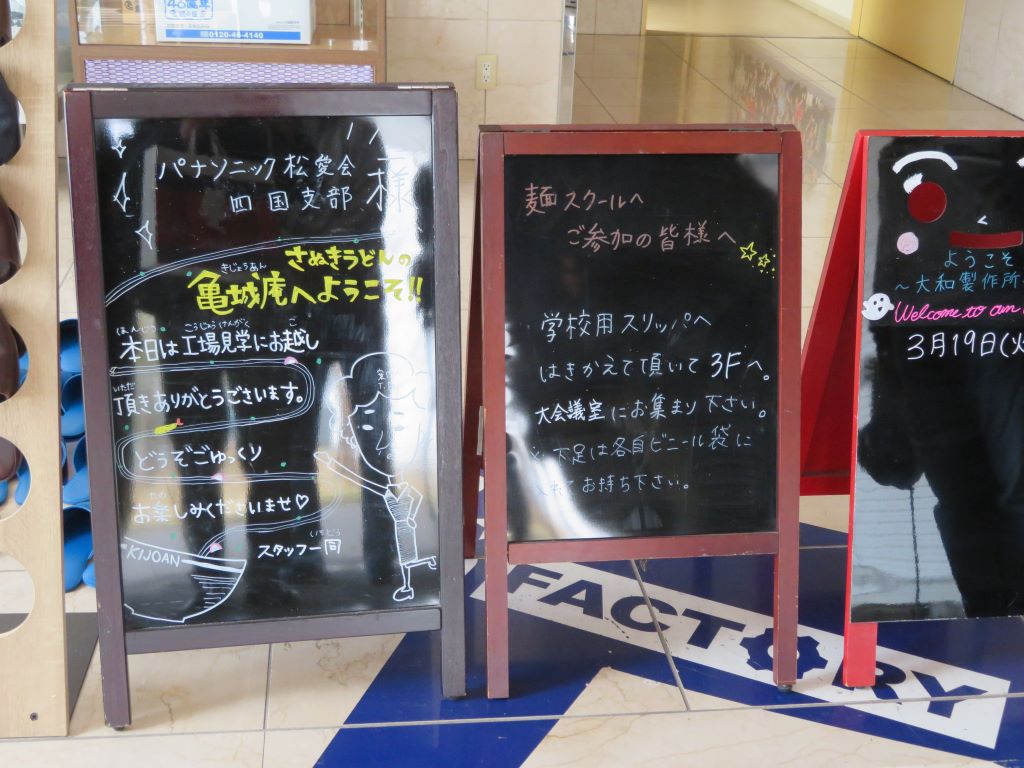 40周年
0120-46-4140
パナソニック 松愛会
四国支部 様
さぬきうどんの
きじょうあん
亀城庵へようこそ!!
ほんじつ こうじょうけんがく こ
本日は工場見学にお越し
いただ
頂きありがとうございます。
どうぞごゆっくり
たの
お楽しみくださいませ♡
いちどう
スタッフ一同
KIJOAN
麺スクールへ
ご参加の皆様へ
学校用スリッパへ
はきかえて頂いて 3Fへ。
大会議室にお集まり下さい。
※下足は各自ビニール袋に
入れてお持ち下さい。
ようこそ
~大和製作所
Welcome to our
3月19日(火
FACTORY